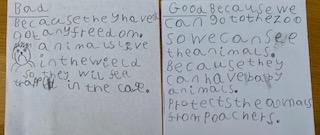 Bad
Because they haven
got any freedom.
animals live
in the weeld
so they will see
trapet in the cage.
Good Because we
can go to the zoo
so we can see
the animals.
Because they
can have baby
animals.
Protects the animals
from poachers.